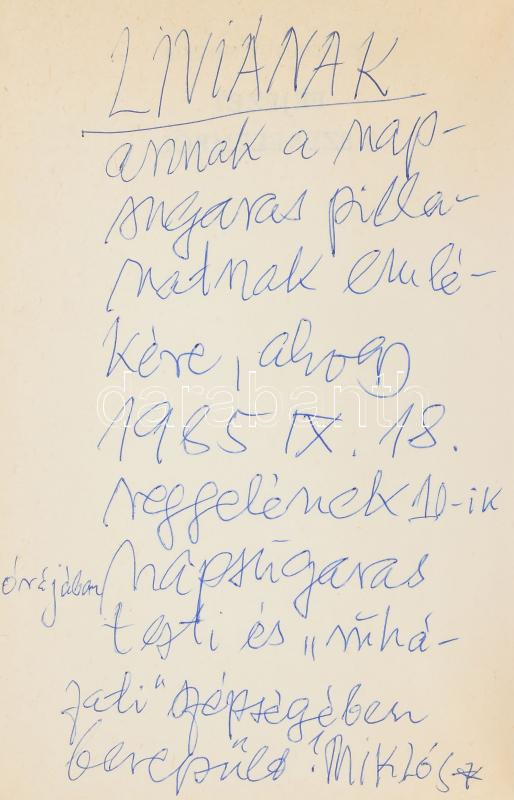 LIVIÁNAK
annak a nap-
sugaras pilla-
natnak emlé-
kére, ahogy
darabanth
1985 IX. 18.
reggelének 10-ik
órájában napsúgaras
testi és „ruhá-
zati" szépségében
berepült! Miklós